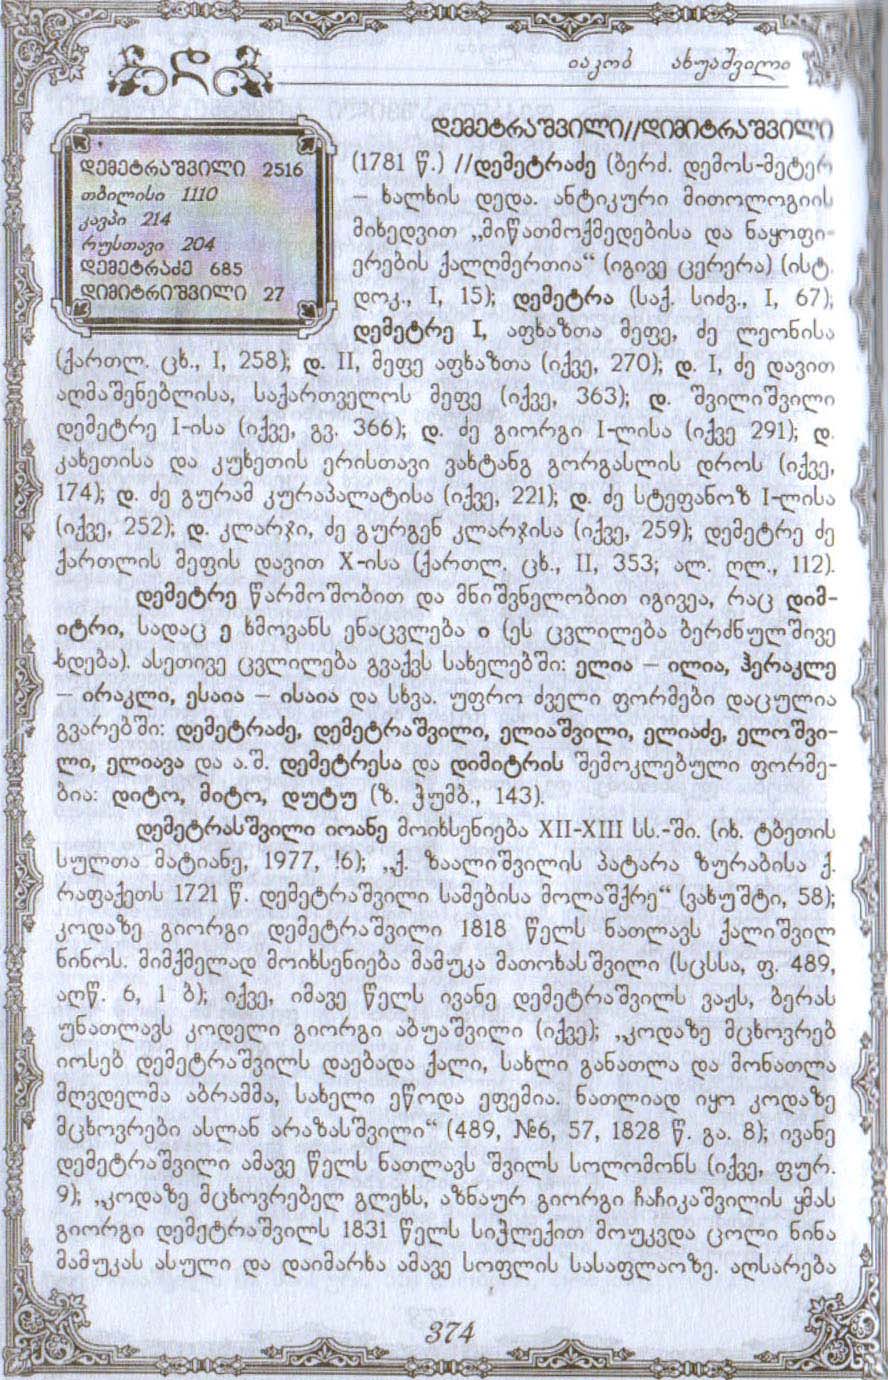 დ
იაკობ ახუაშვილი
დემეტრაშვილი//დიმიტრაშვილი
დემეტრაშვილი 2516
თბილისი 1110
კავპი 214
რუსთავი 204
დემეტრაძე 685
დიმიტრიშვილი 27
(1781 წ.) //დემეტრაძე (ბერძ. დემოს-მეტერ
– ხალხის დედა. ანტიკური მითოლოგიის
მიხედვით „მიწათმოქმედებისა და ნაყოფი-
ერების ქალღმერთია“ (იგივე ცერერა) (ისტ.
დოკ., I, 15); დემეტრა (საქ. სიძვ., I, 67);
დემეტრე I, აფხაზთა მეფე, ძე ლეონისა
(ქართლ. ცხ., I, 258); დ. II, მეფე აფხაზთა (იქვე, 270); დ. I, ძე დავით
აღმაშენებლისა, საქართველოს მეფე (იქვე, 363); დ. შვილიშვილი
დემეტრე I-ისა (იქვე, გვ. 366); დ. ძე გიორგი I-ლისა (იქვე 291); დ.
კახეთისა და კუხეთის ერისთავი ვახტანგ გორგასლის დროს (იქვე,
174); დ. ძე გურამ კურაპალატისა (იქვე, 221); დ. ძე სტეფანოზ I-ლისა
(იქვე, 252); დ. კლარჯი, ძე გურგენ კლარჯისა (იქვე, 259); დემეტრე ძე
ქართლის მეფის დავით X-ისა (ქართლ. ცხ., II, 353; ალ. ღლ., 112).
დემეტრე წარმოშობით და მნიშვნელობით იგივეა, რაც დიმ-
იტრი, სადაც ე ხმოვანს ენაცვლება ი (ეს ცვლილება ბერძნულშივე
ხდება). ასეთივე ცვლილება გვაქვს სახელებში: ელია – ილია, ჰერაკლე
– ირაკლი, ესაია – ისაია და სხვა. უფრო ძველი ფორმები დაცულია
გვარებში: დემეტრაძე, დემეტრაშვილი, ელიაშვილი, ელიაძე, ელოშვი-
ლი, ელიავა და ა.შ. დემეტრესა და დიმიტრის შემოკლებული ფორმე-
ბია: დიტო, მიტო, დუტუ (ზ. ჭუმბ., 143).
დემეტრასშვილი იოანე მოიხსენიება XII-XIII სს.-ში. (იხ. ტბეთის
სულთა მატიანე, 1977, !6); „ქ. ზაალიშვილის პატარა ზურაბისა ქ.
რაფაქეთს 1721 წ. დემეტრაშვილი სამებისა მოლაშქრე“ (ვახუშტი, 58);
კოდაზე გიორგი დემეტრაშვილი 1818 წელს ნათლავს ქალიშვილ
ნინოს. მიმქმელად მოიხსენიება მამუკა მათოხასშვილი (სცსსა, ფ. 489,
აღწ. 6, 1 ბ); იქვე, იმავე წელს ივანე დემეტრაშვილს ვაჟს, ბერას
უნათლავს კოდელი გიორგი აბუაშვილი (იქვე); „კოდაზე მცხოვრებ
იოსებ დემეტრაშვილს დაებადა ქალი, სახლი განათლა და მონათლა
მღვდელმა აბრამმა, სახელი ეწოდა ეფემია. ნათლიად იყო კოდაზე
მცხოვრები ასლან არაზასშვილი“ (489, №6, 57, 1828 წ. გა. 8); ივანე
დემეტრაშვილი ამავე წელს ნათლავს შვილს სოლომონს (იქვე, ფურ.
9); „კოდაზე მცხოვრებელ გლეხს, აზნაურ გიორგი ჩაჩიკაშვილის ყმას
გიორგი დემეტრაშვილს 1831 წელს სიჭლექით მოუკვდა ცოლი ნინა
მამუკას ასული და დაიმარხა ამავე სოფლის სასაფლაოზე. აღსარება
374